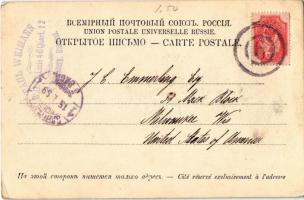 1.50
ВСЕМІРНЫЙ ПОЧТОВЫЙ СОЮЗЪ. РОССІЯ.
UNION POSTALE UNIVERSELLE RUSSIE.
ОТКРЫТОЕ ПИСЬМО — CARTE POSTALE.
J. C. Emmerling Esq
Mack Block
Milwaukee Wis
United States of America
На этой сторонѣ пишется только адресъ. — Côté réservé exclusivement à l'adresse